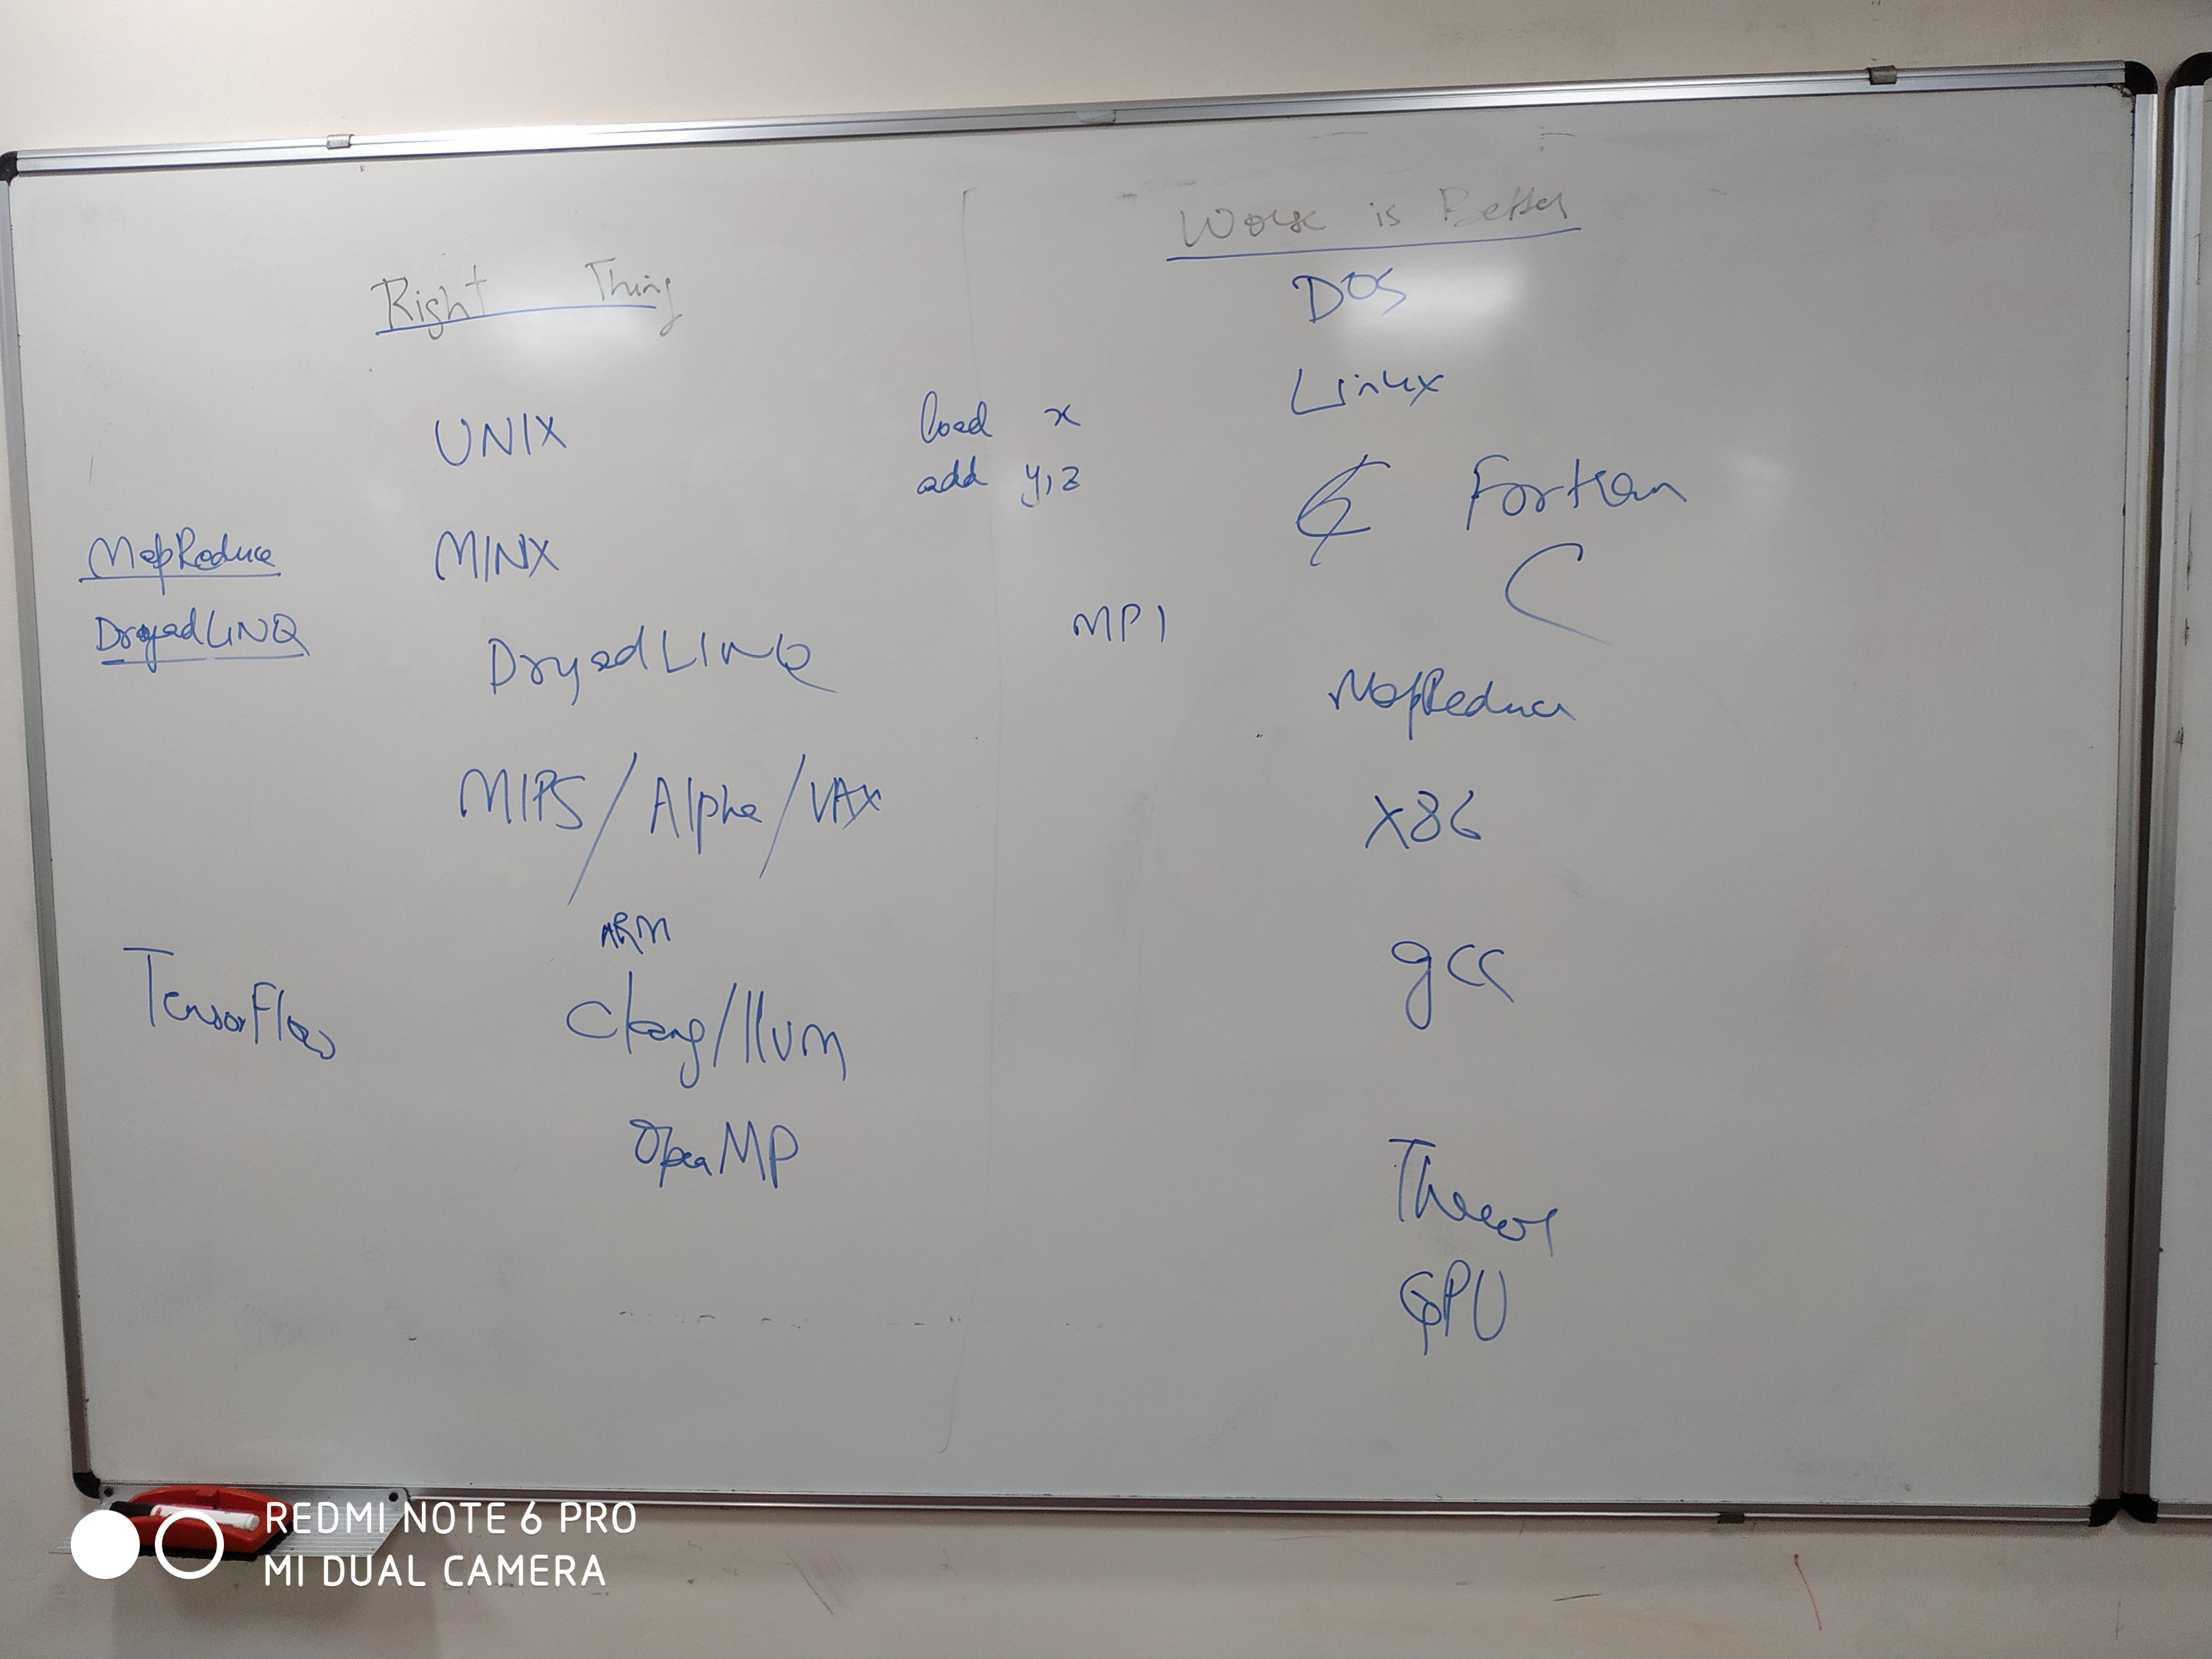 Right Thing
UNIX
MINX
MapReduce
DryadLINQ
DryadLINQ
MIPS/Alpha/VAX
ARM
TensorFlow
Clang/llvm
OpenMP
load x
add y,z
MPI
Worse is Better
DOS
Linux
Fortran
C
MapReduce
X86
gcc
GPU
REDMI NOTE 6 PRO
MI DUAL CAMERA